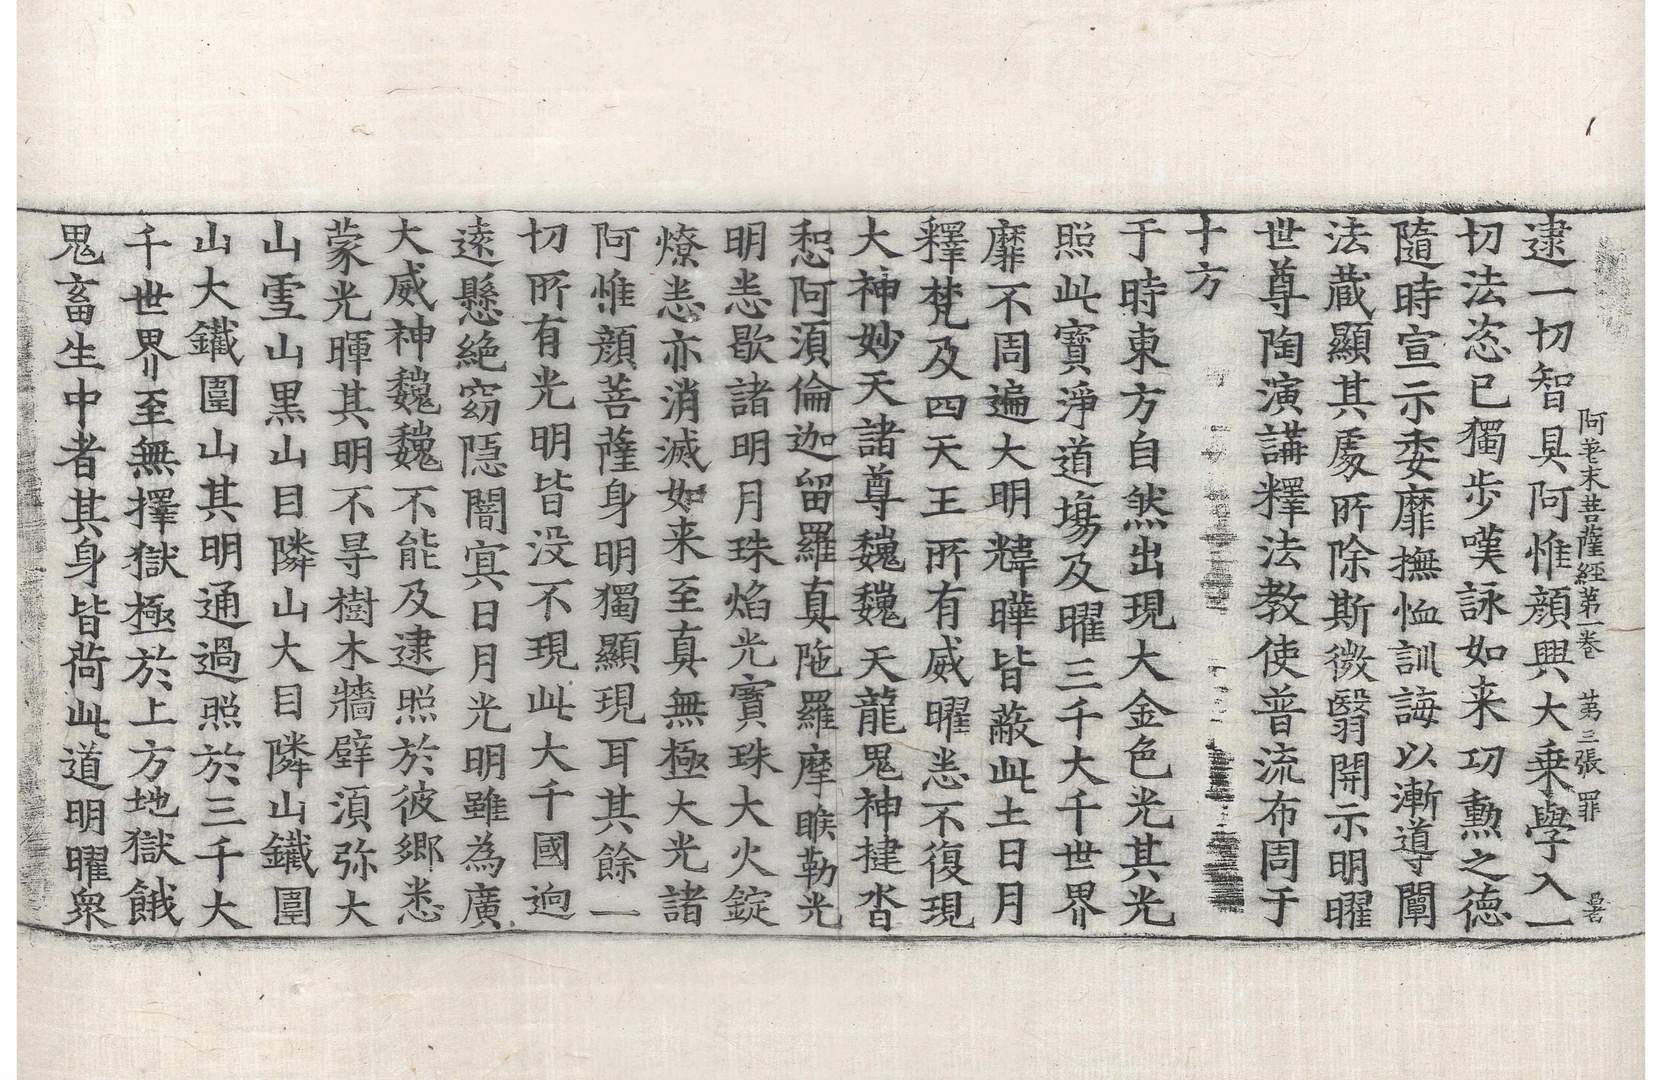 阿差末菩薩經第一卷 第三張 罪
逮一切智具阿惟顔興大乗學入一
切法恣已獨步嘆詠如来功勲之德
隨時宣示委靡撫恤訓誨以漸導闡
法蔵顯其處所除斯微翳開示明曜
世尊陶演講釋法教使普流布周于
十方
于時東方自然出現大金色光其光
照此寶淨道塲及曜三千大千世界
靡不周遍大明煒曄皆蔽此土日月
釋梵及四天王所有威曜悉不復現
大神妙天諸尊巍巍天龍鬼神揵沓
惒阿須倫迦留羅真陁羅摩睺勒光
明悉歇諸明月珠焰光寶珠大火錠
燎悉亦消滅如来至真無極大光諸
阿惟顔菩薩身明獨顯現耳其餘一
切所有光明皆没不現此大千國逈
逺懸絶窈隠闇㝠日月光明雖為廣
大威神巍巍不能及逮照於彼鄉悉
蒙光暉其明不㝵樹木牆壁須弥大
山雪山黒山目隣山大目隣山鐵圍
山大鐵圍山其明通過照於三千大
千世界至無擇獄極於上方地獄餓
鬼畜生中者其身皆荷此道明曜衆